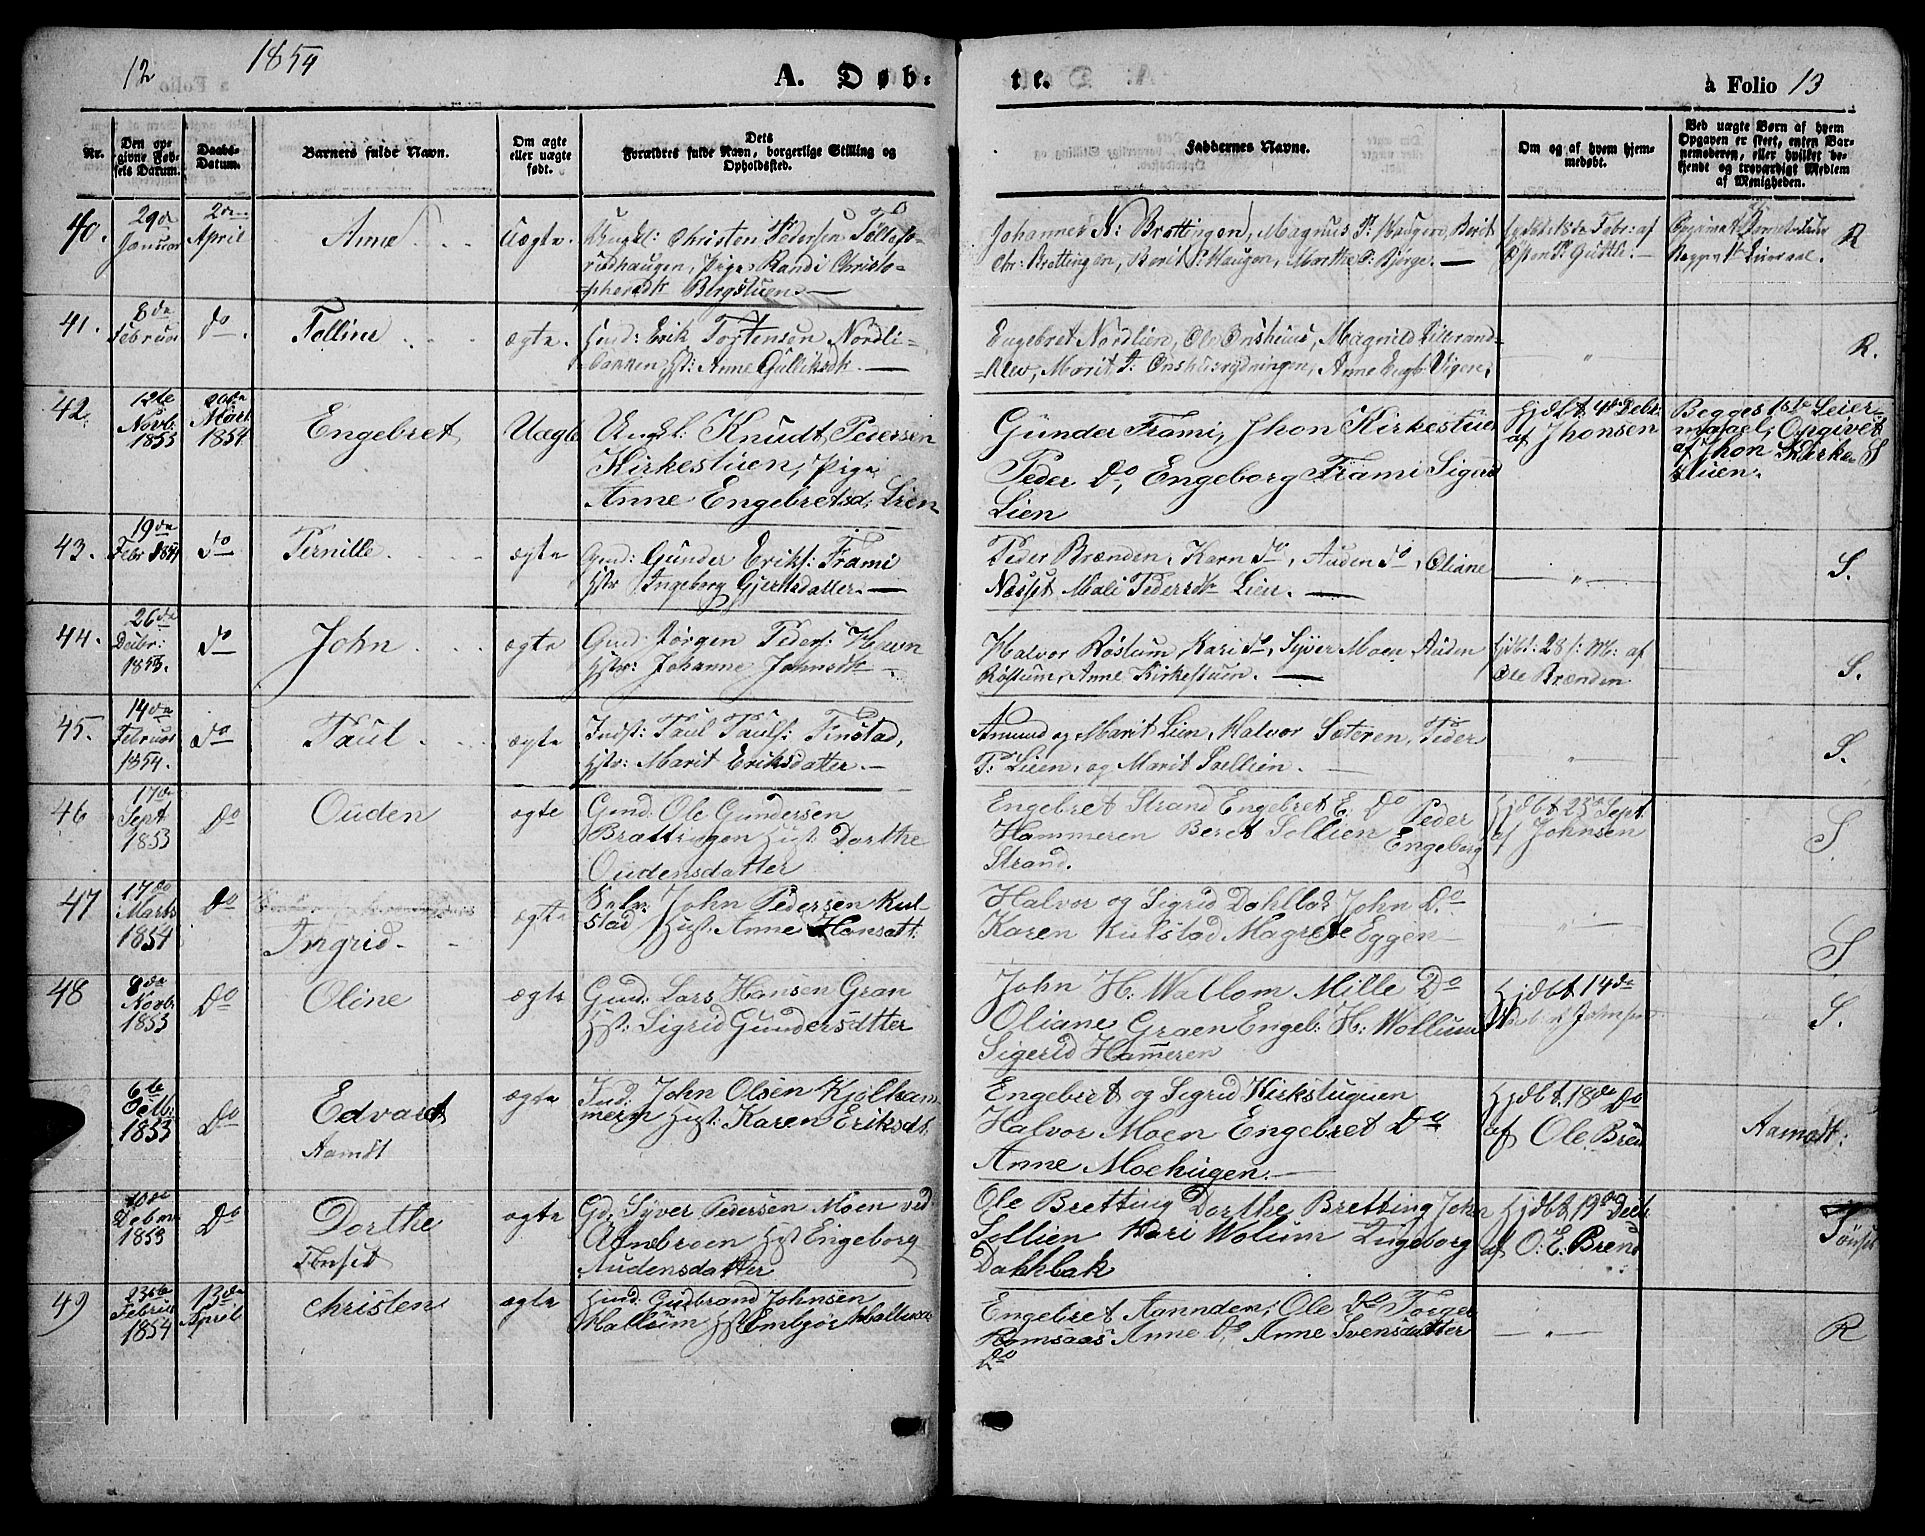 12
1854
A. Døb-
te.
a Folio 13
Nr.
Den op-
givne Fød-
sels Datum.
Daabs-
Datum.
Barnets fulde Navn.
Om ægte
eller uægte
født.
Dets
Forældres fulde Navn, borgerlige Stilling og
Opholdssted.
Faddernes Navne.
Om og af hvem hjem-
medøbt.
Ved uægte Børn af hvem
Opgaven er skeet, enten Bar-
nemoderen, eller hvilket be-
kjendt og troværdigt Medlem
af Menigheden.
40.
29de
Januar
2den
April
Anne
Uægte.
Ungkl: Christen Pedersen
Pige Randi Christo-
phersdtr Bergstuen
Johannes N: Brettingen, Magnus P: Haugen, Berit
Chr: Brettingen, Berit P: Haugen, Marthe
hjdbt 18de Febr: af
R
41.
8de
Februar
do.
Polline
ægte.
Huusm: Erik Nordli-
bakken, Hst: Anne Gulliksdtr.
Engebret Nordlien, Ole Onshuus, Magnild
Marit Onshuusrydningen, Anne
"
R.
42.
12te
Novb:
1853
20de
Marts
1854
Engebret
Uægte
Ungkl: Knudt Petersen
Kirkestuen, Pige
Anne Engebretsd: Lien
Gunder Frami, Jhon Kirkestuen
Peder Do, Engeborg Frami Siger
Lien
Hjdbt 4de Debr.
af Jhonsen
Begges 1ste Leier-
maael; Opgivet
af Jhon Kirke-
stuen.
S
43.
19de
Febr 1854
do
Pernille
ægte
Gmd: Gunder Eriks: Frami
Hstr Ingeborg Gjertsdatter.
Peder Brænden, Karn do, Auden do, Oliane
Næsset Mali Pedersdtr Lien.
"
S.
44.
26de
Decbr:
1853.
do
John
ægte
Gmd: Jörgen Peders: Havn
Hstr: Johanne Johnsdtr
Halvor Röstum, Kari do, Syver Moen Auden
Röstum, Anne Kirkestuen.
hjdbt: 28 s: M: af
Ole Brænden
S.
45.
14de
Februar
1854.
do
Paul
ægte
Indst: Paul Pauls: Finstad,
Hstr: Marit Eriksdatter.
Amund og Marit Lien, Halvor Sæteren, Peder
P: Lien, og Marit Sollien.
"
S.
46
17de
Sept
1853
Do
Ouden
ægte
Gmd. Ole Gundersen
Brettingen Hust. Dorthe
Oudensdatter
Engebret Strand Engebret E. Do Peder
Hammeren Beret Sollien Engeborg
Strand.
Hjdbt. 23de Sept.
af Johnsen
S
47
17de
Marts
1854
Do
Ingrid
ægte
Selv: John Pedersen Kul-
stad Hust. Anne Hansdtt.
Halvor og Sigrid Dahlbak John Do
Karen Kulstad Magrete Eggen
"
S
48
8de
Novb:
1853
Do
Oline
ægte
Gmd: Lars Hansen Gran
Hst: Sigrid Gundersdatter
John H: Wallom Mille Do
Oliane Graen Engeb: H: Wollum
Sigerid Hameren
Hjdbt. 14de
af Johnsen
S.
6te
Octb:
1853
Do
Edvardt
Aamdt
ægte
Ind. John Olsen Kjölham-
meren Hust: Karen Eriksdt.
Engebret og Sigrid Kirkstuguen
Halvor Moen Engebret Do
Anne Moehugen.
Hjdbt. 18de Do
af Ole Bren
Aamodt:
10de
Debm
1853
Do
Dorthe
Tönset
ægte
Gd. Syver Pedersen Moen ved
Aanebroen Hst Engeborg
Audensdatter
Ole Bretting Dorthe Bretting John
Sollien Kari Wolum Engeborg
Dahlbak
Hjdbt. 19de Decb.
af O: E: Brend
Tönset
49
23de
Februar
1854
13de
April
Christen
ægte
Gmd: Gudbrand Johnsen
Hallum Hst Embjör
Engebret Aannden, Ole Do
Ramsaas Anne Do, Anne Svensdatter
Do
"
R